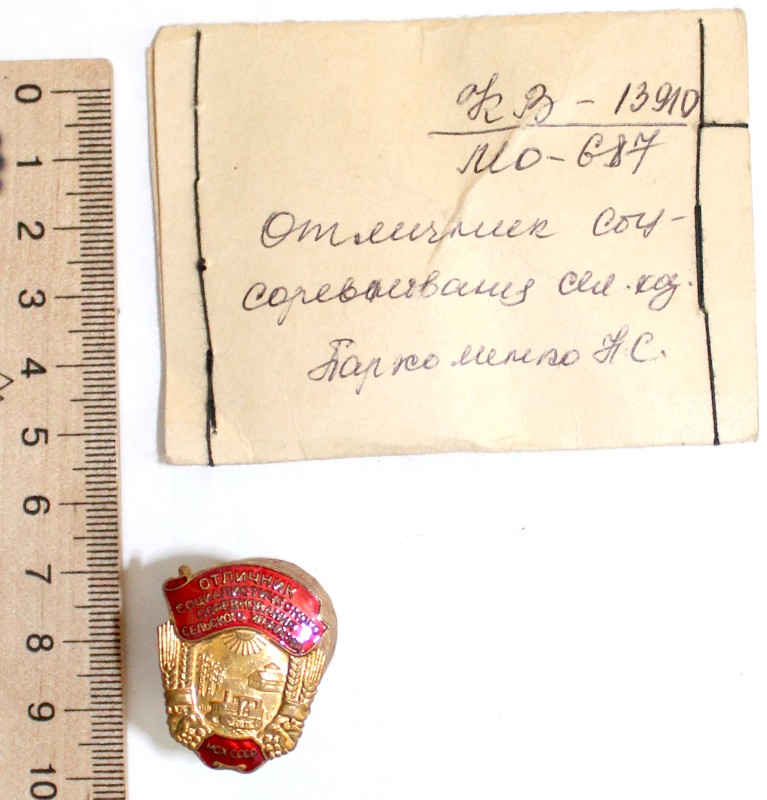 КВ - 13910
МО - 687
Отличник соц-
соревнования сел. хоз.
Пархоменко Н.С.
ОТЛИЧНИК
СОЦИАЛИСТИЧЕСКОГО
СОРЕВНОВАНИЯ
СЕЛЬСКОГО
МСХ СССР
0
1
2
3
4
5
6
7
8
9
10